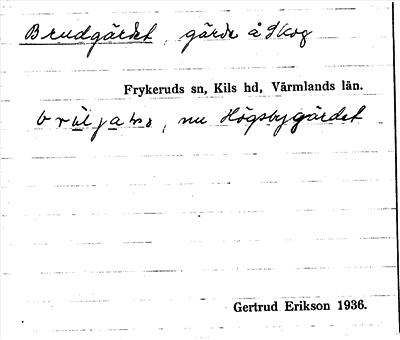 Brudgärdet, gärde å Skog
Frykeruds sn, Kils hd, Värmlands län.
, nu Högsbygärdet
Gertrud Erikson 1936.